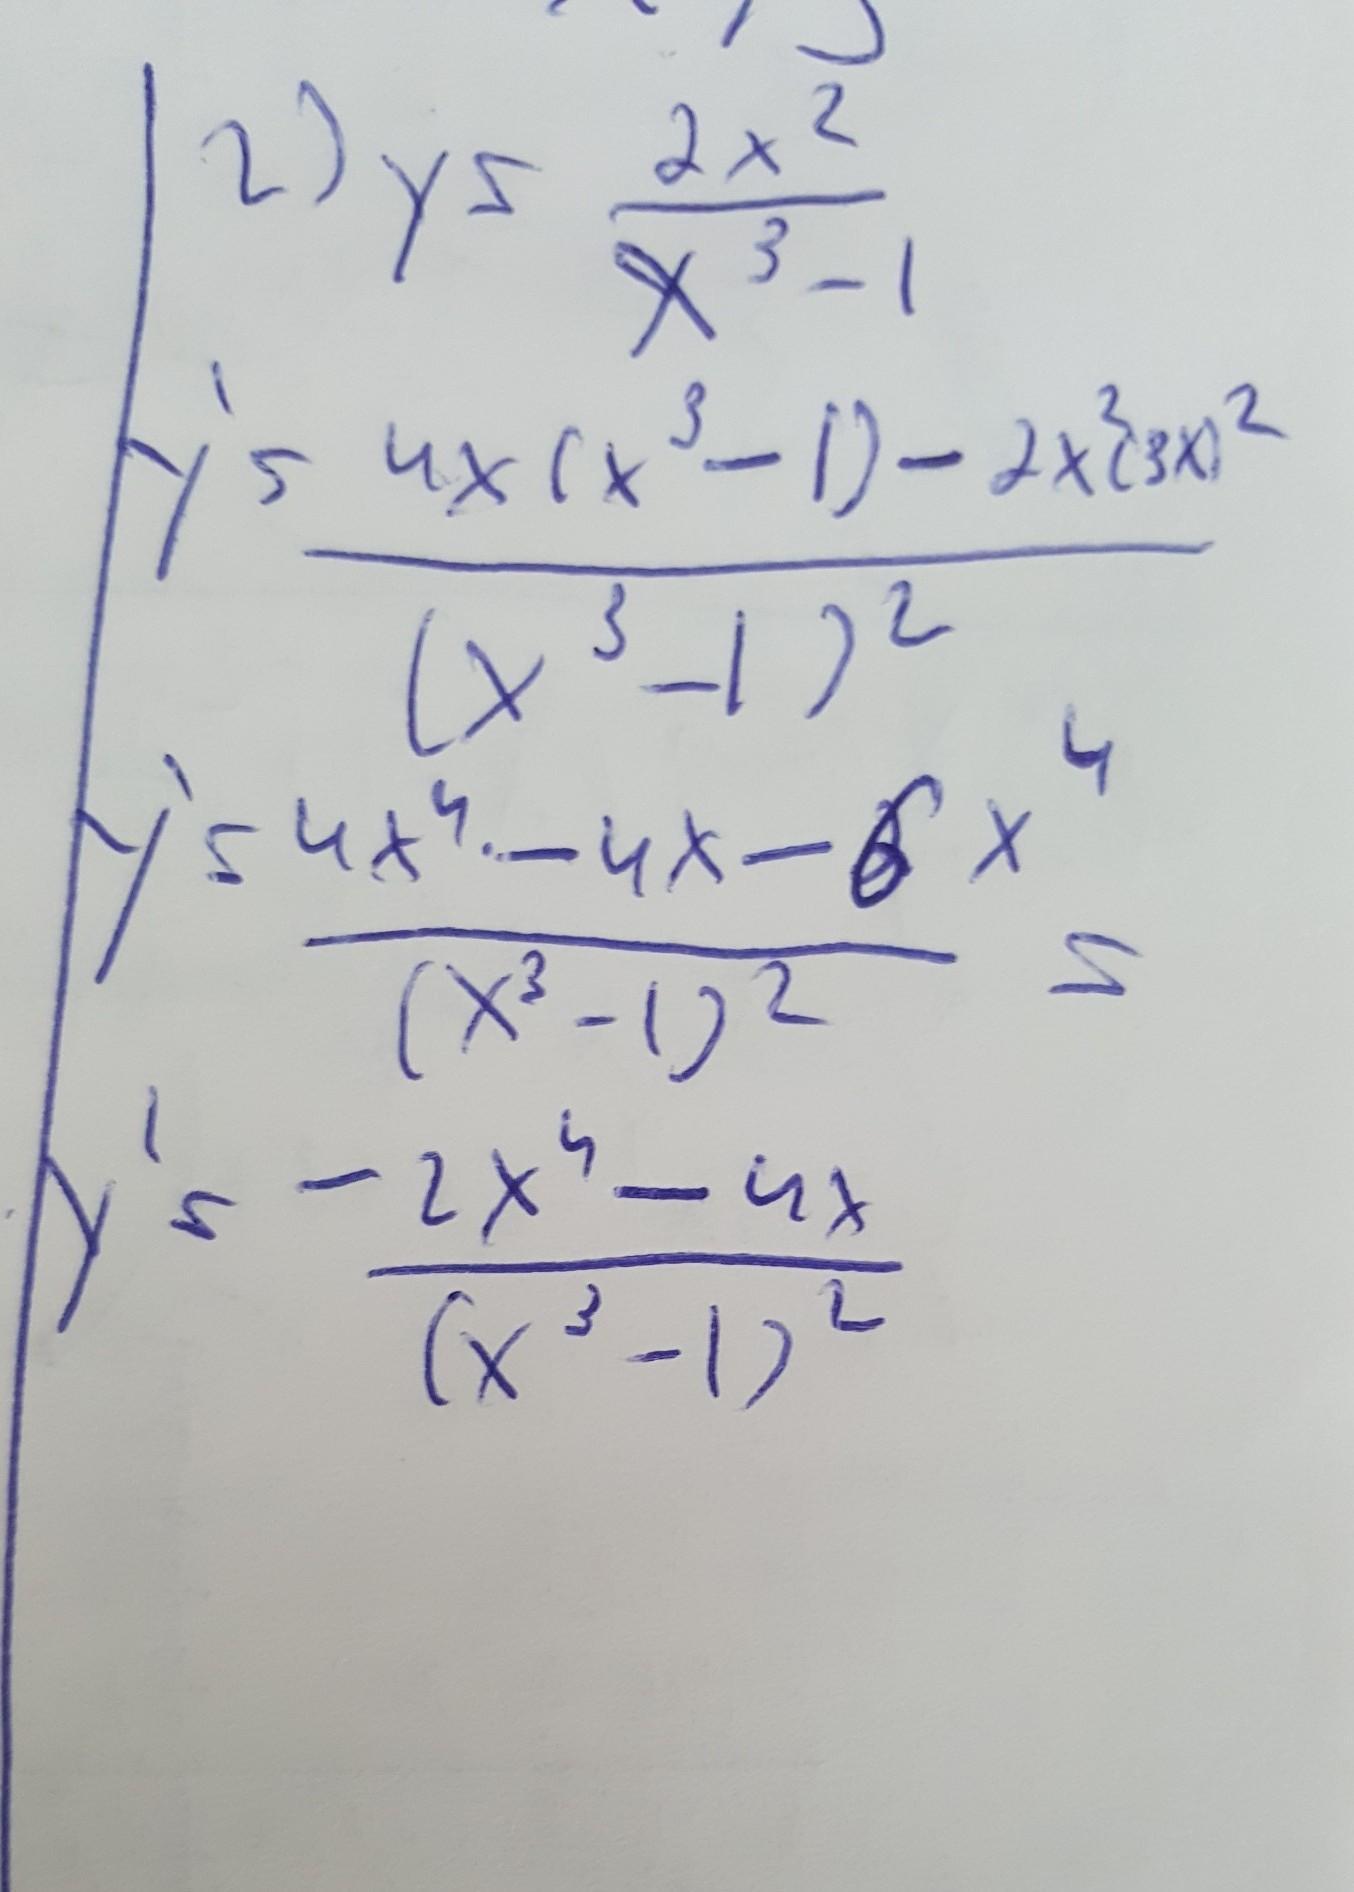 2) y = 2x²/(x³-1)
y' = (4x(x³-1) - 2x²(3x)²)/(x³-1)²
y' = (4x⁴ - 4x - 6x⁴)/(x³-1)² =
y' = (-2x⁴ - 4x)/(x³-1)²